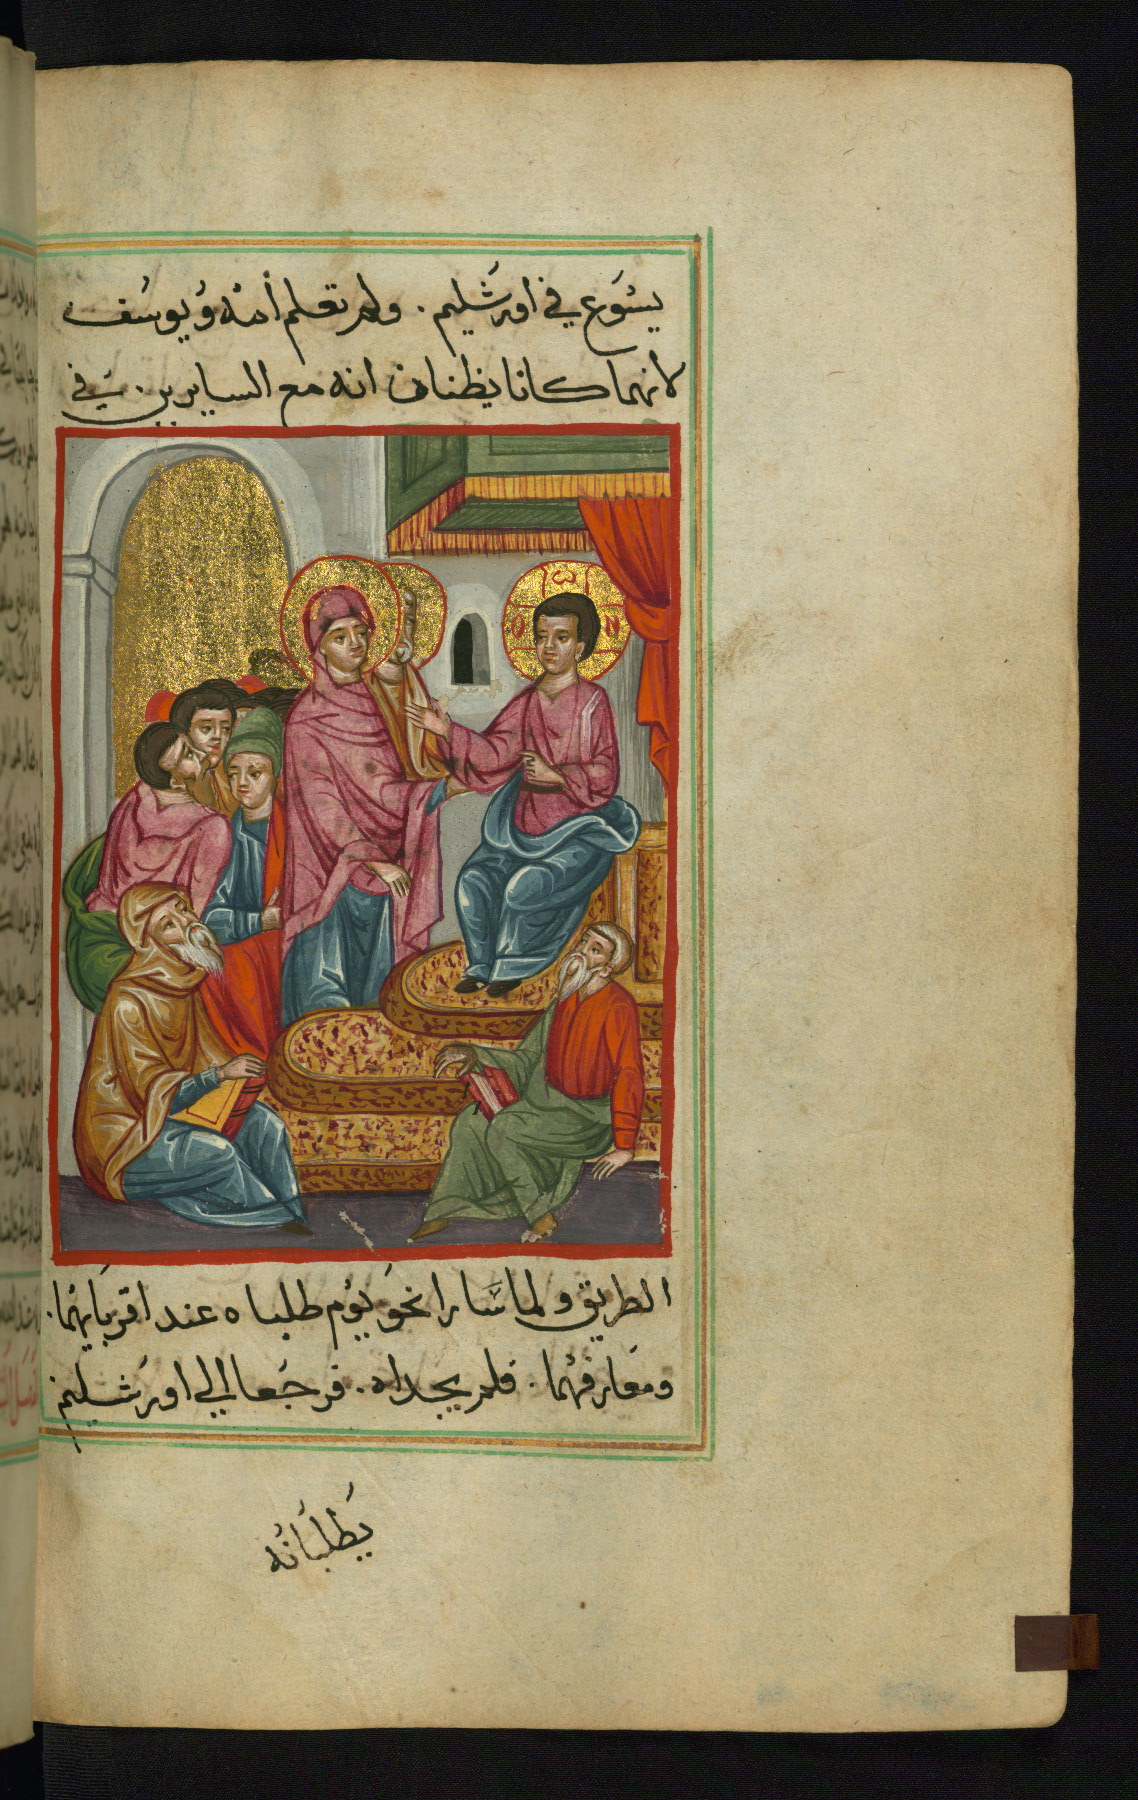 يسُوَع في اورَشَليم. ولم تعلم أمهُ وُيوسُف
لانهما كانا يظنان انه مع السايرين. في
ω
Ο Ν
الطريق ولما سَارا نحوَ يوُم طلباه عند اقربَايهُما.
ومعَارفهُما. فلم يجداه. فرجَعا الي اورَشليم
يَطلبَانُه